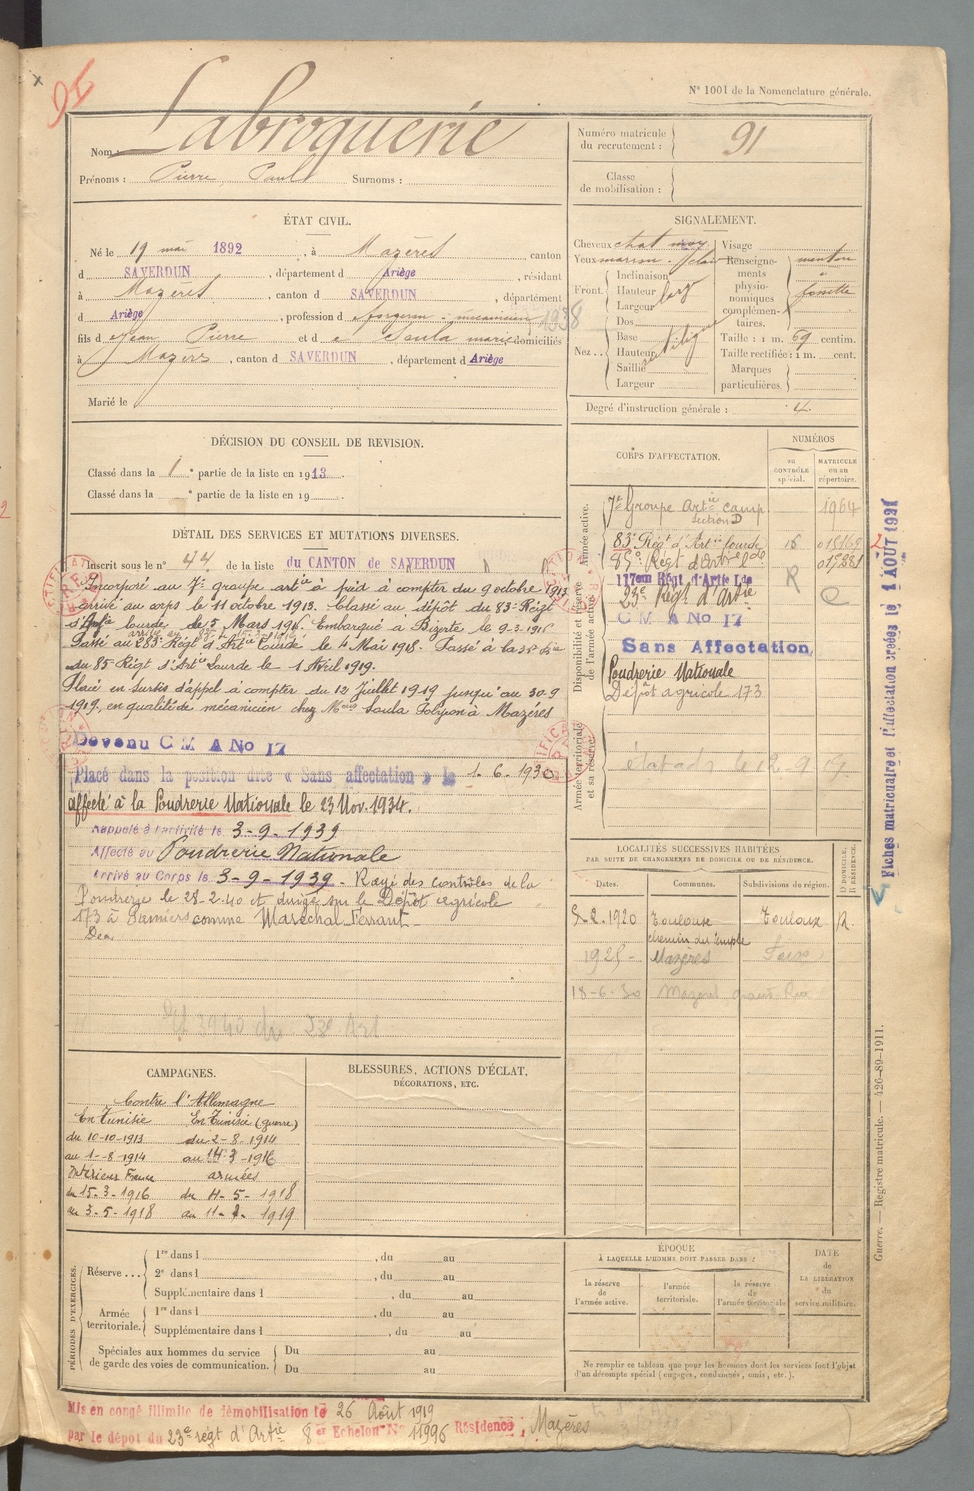 N° 1001 de la Nomenclature générale.
Nom : Labroquerie
Prénoms : Pierre Paul Surnoms :
Numéro matricule du recrutement : 91
Classe de mobilisation :
ÉTAT CIVIL.
Né le 19 mai 1892, à Mazères canton
d SAVERDUN, département d Ariège, résidant
à Mazères, canton d SAVERDUN, département
d Ariège, profession d forgeron - mécanicien 1938
fils d Jean Pierre et d Saula marie domiciliés
à Mazères, canton d SAVERDUN, département d Ariège
Marié le
SIGNALEMENT.
Cheveux chat Visage
Yeux marron clair Renseignements physionomiques complémentaires. menton à fossette
Front. Inclinaison
Hauteur large
Largeur
Nez.. Dos
Base
Hauteur
Saillie
Largeur
Taille : 1 m. 69 centim.
Taille rectifiée : 1 m. cent.
Marques particulières.
Degré d'instruction générale : 4.
DÉCISION DU CONSEIL DE REVISION.
Classé dans la 1e partie de la liste en 1913
Classé dans la e partie de la liste en 19
DÉTAIL DES SERVICES ET MUTATIONS DIVERSES.
Inscrit sous le n° 44 de la liste du CANTON de SAVERDUN
Incorporé au 7e groupe artie à pied à compter du 9 octobre 1913
arrivé au corps le 11 octobre 1913. Classé au dépôt du 83e Régt
d'Artie lourde le 5 Mars 1916. Embarqué à Bizerte le 9-3-1916
Passé au 283e Régt d'Artie Lourde le 4 Mai 1918. Passé à la
du 85 Régt d'Artie Lourde le 1 Avril 1919.
Placé en sursis d'appel à compter du 12 Juillet 1919 jusqu'au 30-9
1919, en qualité de mécanicien chez Saula à Mazères
Devenu C M A No 17
Placé dans la position dite « Sans affectation » le 1-6-1930
affecté à la Poudrerie Nationale le 23 Nov. 1934.
Rappelé à l'activité le 3-9-1939
Affecté au Poudrerie Nationale
Arrivé au Corps le 3-9-1939 - Rayé des contrôles de la
Poudrerie le 28-2-40 et dirigé sur le Dépôt agricole
173 à comme Maréchal Ferrant
CORPS D'AFFECTATION.
NUMÉROS
au CONTRÔLE spécial.
MATRICULE ou au répertoire.
Armée active.
7e Groupe Artie camp Section D 1964
83e Régt d'Artie lourde 16
85e Régt d'Artie lde
Disponibilité et réserve de l'armée active.
117em Régt d'Artie Lde R
23e Régt d'Artie
C M A No 17
Sans Affectation
Poudrerie Nationale
Dépôt agricole 173
Armée territoriale et sa réserve.
LOCALITÉS SUCCESSIVES HABITÉES
PAR SUITE DE CHANGEMENTS DE DOMICILE OU DE RÉSIDENCE.
Dates. Communes. Subdivisions de région. D. DOMICILE, R. RÉSIDENCE.
5-2-1920 Toulouse Toulouse R.
chemin du temple
1925 - Mazères Foix
18-6-30
CAMPAGNES.
Contre l'Allemagne
En Tunisie En Tunisie (guerre)
du 10-10-1913 du 2-8-1914
au 1-8-1914 au 14-3-1916
Intérieur France armées
du 15-3-1916 du 4-5-1918
au 3-5-1918 au 11-7-1919
BLESSURES, ACTIONS D'ÉCLAT,
DÉCORATIONS, ETC.
PÉRIODES D'EXERCICES.
Réserve ... 1re dans l , du au
2e dans l , du au
Supplémentaire dans l , du au
Armée territoriale. 1re dans l , du au
Supplémentaire dans l , du au
Spéciales aux hommes du service de garde des voies de communication. Du au
Du au
ÉPOQUE
À LAQUELLE L'HOMME DOIT PASSER DANS :
la réserve de l'armée active.
l'armée territoriale.
la réserve de l'armée territoriale
DATE de LA LIBÉRATION du service militaire.
Ne remplir ce tableau que pour les hommes dont les services font l'objet
d'un décompte spécial (engagés, condamnés, omis, etc.).
Mis en congé illimité de démobilisation le 26 Août 1919
par le dépôt du 23e régt d'Artie 8e Echelon N° 11996 Résidence : Mazères
Fiches matriculaire et d'affectation créées le 1 AOUT 1921
Guerre. — Registre matricule. — 426-89-1911.